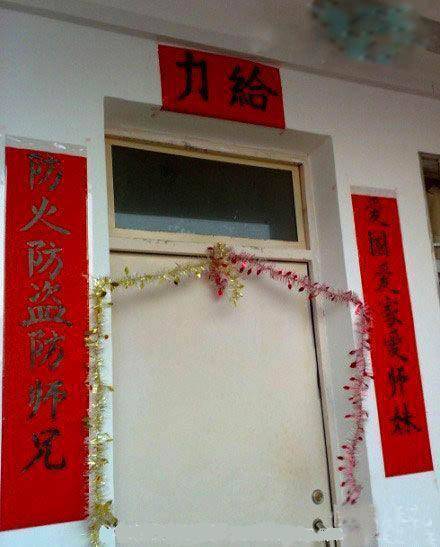 給力
爱國爱家爱师妹
防火防盗防师兄